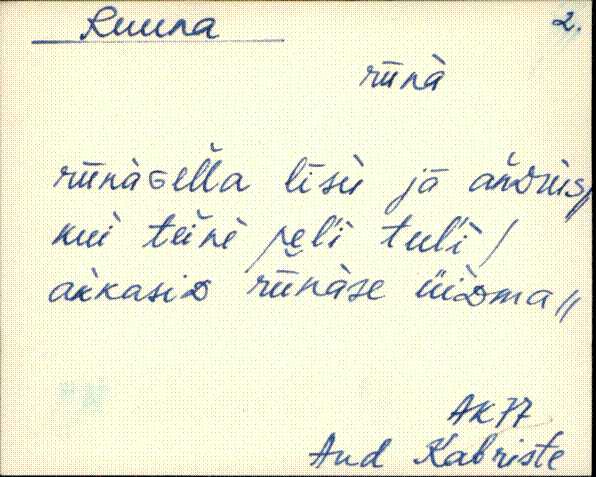 Ruuna
2.
rünà
rünàsella lisü jä andüis/
kui teine peli tuli /
akkasiD rünàse üiDma //
AK 77
And Kabriste